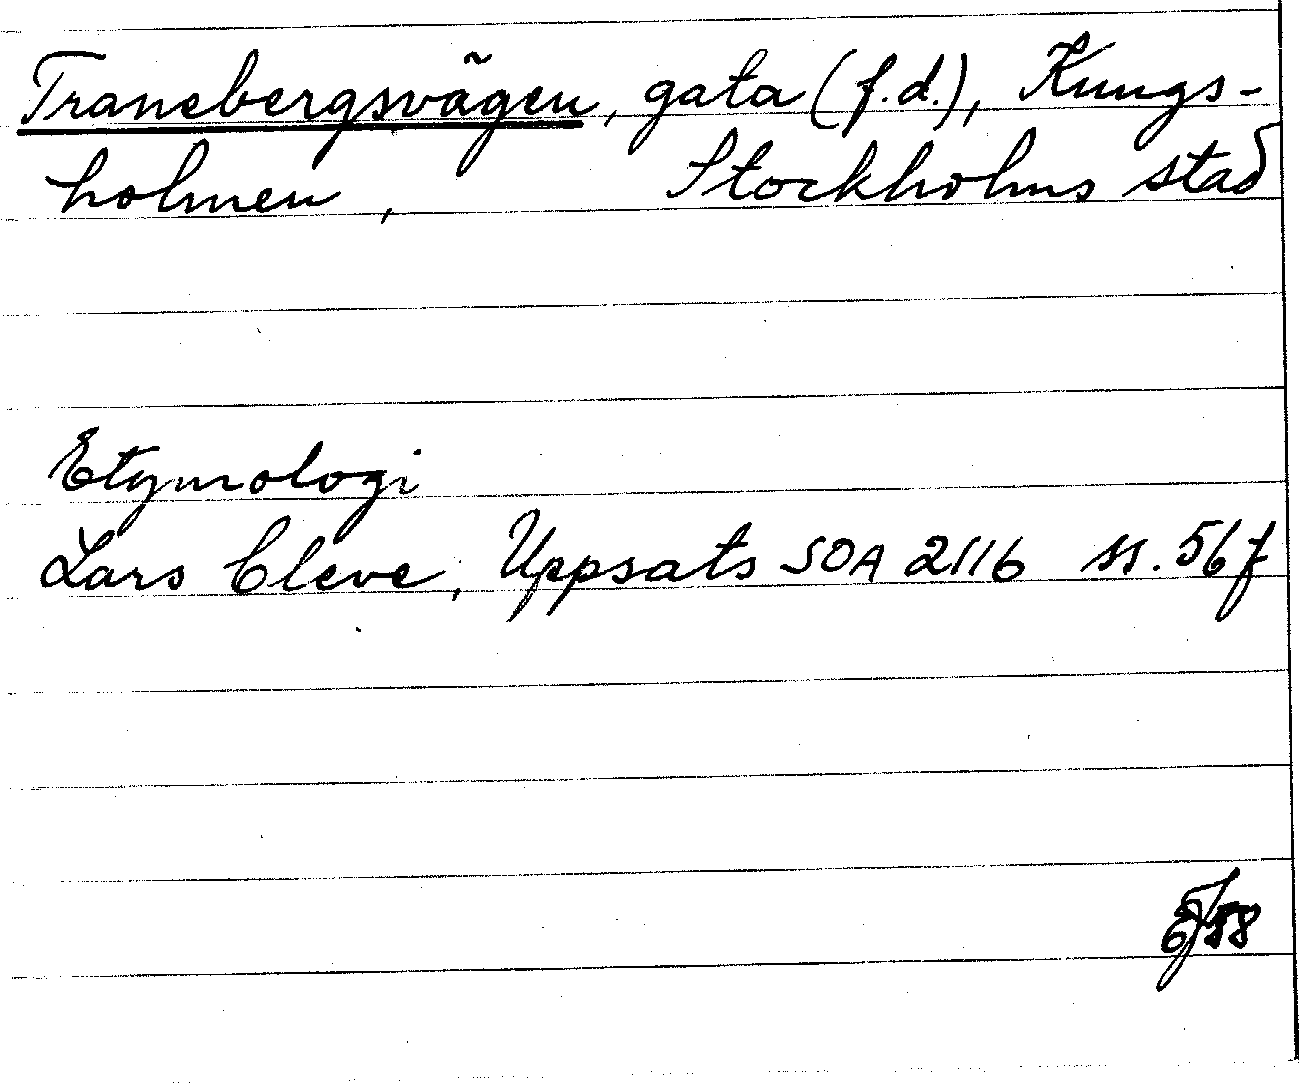 Tranebergsvägen, gata (f.d.), Kungs-
holmen, Stockholms stad
Etymologi
Lars Cleve, Uppsats SOA 2116 ss. 56 f